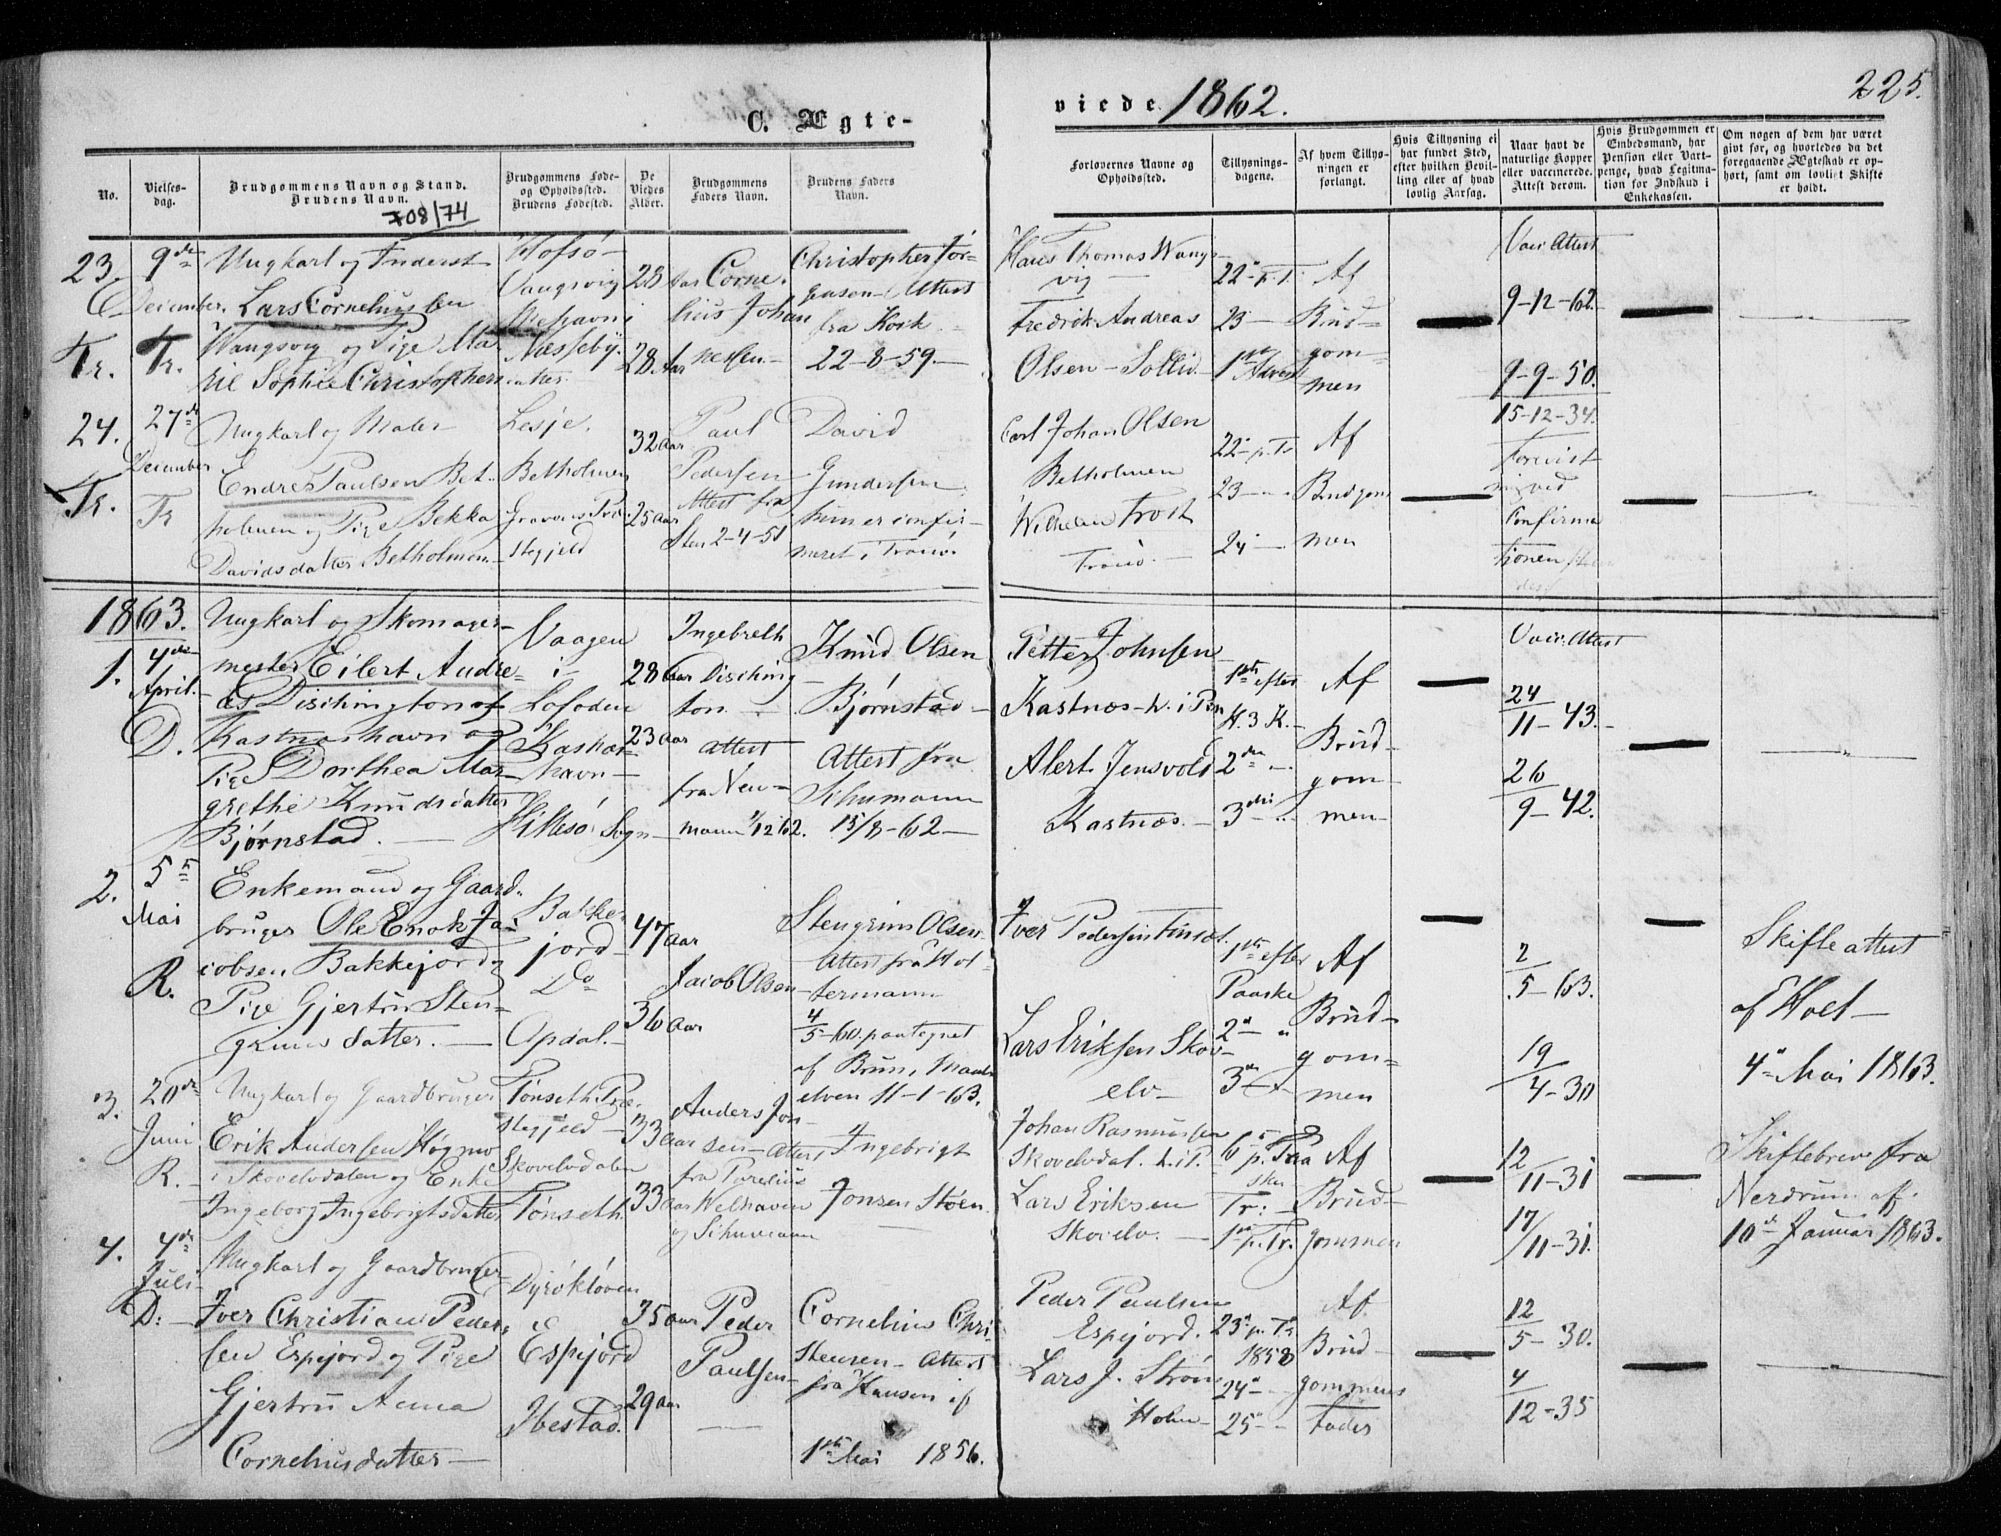 225.
C. Ægte-
viede 1862.
No.
Vielses-
dag.
Brudgommens Navn og Stand.
Brudens Navn.
708/74
Brudgommens Føde-
og Opholdssted.
Brudens Fødested.
De
Viedes
Alder.
Brudgommens
Faders Navn.
Brudens Faders
Navn.
Forlovernes Navne og
Opholdssted.
Tillysnings-
dagene.
Af hvem Tillys-
ningen er
forlangt.
Hvis Tillysning ei
har fundet Sted,
efter hvilken Bevil-
ling eller af hvad
lovlig Aarsag.
Naar havt de
naturlige Kopper
eller vaccinerede.
Attest derom.
Hvis Brudgommen er
Embedsmand, har
Pension eller Vart-
penge, hvad Legitima-
tion for Indskud i
Enkekassen.
Om nogen af dem har været
givt før, og hvorledes da det
foregaaende Ægteskab er op-
hørt, samt om lovligt Skifte
er holdt.
23.
9de
December.
Tr.
Tr.
Ungkarl og Inderst
Lars Corneliussen
Vangsvig og Pige Ma-
Sophie Christophers
datter
Hofsø
Vangsvig
Næsseby
28 Aar
28 Aar
Corne-
lius Johan
nessen
Christopher Jør-
gensen Attest
fra
22-8-59.
Hans Thomas Wangs-
vig
Fredrik Andreas
Olsen Sollid
22 p. T.
23
1ste Advent
Af
Brud-
gom-
men
Vacc. Attest
9-12-62.
9-9-50.
24.
27de
December
Tr.
Tr
Ungkarl og Maler
Endre Paulsen Bet-
holmen og Pige Bekka
Davidsdatter Betholmen
Lesje.
Betholmen
Præ-
stegjeld
32 Aar
25 Aar
Paul
Pedersen
Attest fra
2-4-51
David
Gundersen
hun er confir-
meret i Tranø
Carl Johan Olsen
Betholmen
Wilhelm Frost
Tranø
22 p. Tr
23
24
Af
Brudgom
men
15-12-34.
Confirma
tionen
1863.
1.
4de
April.
D.
Ungkarl og Skomager-
mester Eilert Andre-
as Dischington af
Kastnæshavn og
Pige Dorthea Mar-
grethe Knudsdatter
Bjørnstad.
Vaagen
i
Lofoden
Kastnæs-
havn
Hillesø Sogn
28 Aar
23 Aar
Ingebreth
Disching-
ton
Attest
fra Neu-
mann /12 62.
Knud Olsen
Bjørnstad
Attest fra
Schumann
15/8-62
Petter Johnsen
Kastnæs
Alert Jensvold
Kastnæs.
1ste efter
H. 3 K.
2den
3die
Af
Brud-
gom
men
Vacc. Attest
24
11-43.
26
9-42.
2.
5te
Mai
R.
Enkemand og Gaard-
bruger Ole Enok Ja-
cobsen Bakkejord og
Pige Gjertru Sten-
grimsdatter.
Bakke-
jord
Do
Opdal.
47 Aar
36 Aar
Jacob Olsen
Stengrim Olsen
Attest fra Hol-
termann
4
5-60 paategnet
af Brun, Maals
elven 11-1-63.
Iver Pedersen
Lars Eriksen Skov-
elv
1ste efter
Paaske
2
3
Af
Brud-
gom-
men
2
5-63.
19
4-30
Skifteattest
af Holt
4de Mai 1863.
3.
20de
Juni
R.
Ungkarl og Gaardbruger
Erik Andersen Høgmo
i Skovelvdalen og Enke
Ingeborg Ingebrigtsdatter
Tønseth Præ-
stegjeld
Skovelvdalen
Tønseth
33 Aar
33 Aar
Anders Jon-
sen Attest
fra
Welhaven
og Schumann
Ingebrigt
Jonsen Støen
Johan Rasmussen
Skovelvdal.
Lars Eriksen
Skovelv.
6 p. Paa
ske
Tr:
1ste p. Tr.
Af
Brud-
gommen
12
11-31
17
11-31.
Skiftebrev fra
Nerdrum af
10de Januar 1863.
4.
4de
Juli
D:
Ungkarl og Gaardbruger
Iver Christian Peder-
sen Espejord og Pige
Gjertru Anna
Corneliusdatter
Dyrøkløven
Espejord
Ibestad.
35 Aar
29 Aar
Peder
Paulsen
Cornelius Chri-
stensen Attest
fra Hansen af
1ste Mai 1856.
Peder Paulsen
Espejord.
Lars J. Strøm
Holm
23 p. Tr
1858
24
25
Af
Brud-
gommens
Fader
12
5-30.
4
12-35